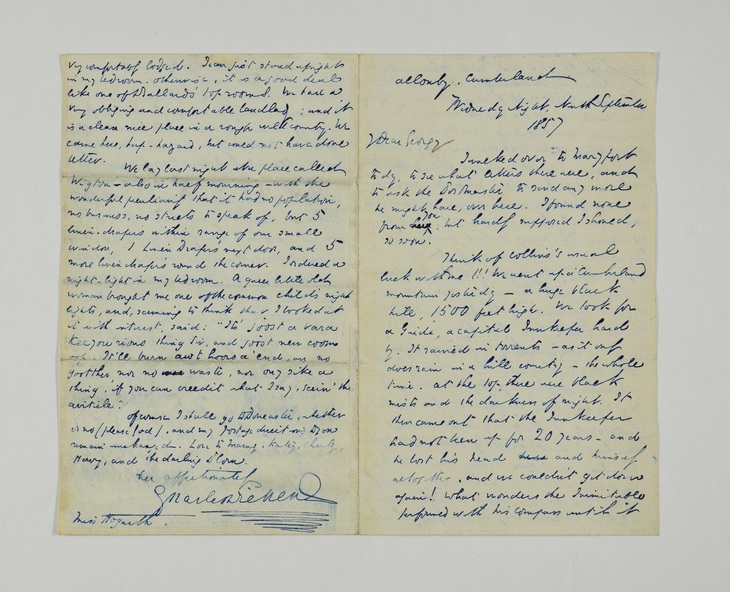 allonby. Cumberland
Wednesday Night Ninth September
1857
My Dear Georgy
I walked over to Maryport
to day, to see what letters there were, and
to ask the Postmaster to send any more
he might have, over here. I found none
from you; but hardly supposed I should,
so soon.
Think of Collins's usual
luck with me!!! We went up a Cumberland
mountain yesterday – a huge black
hill, 1500 feet high. We took for
a Guide, a capital Innkeeper hard
by. It rained in torrents – as it only
does rain in a hill country – the whole
time. At the top, there were black
mists and the darkness of night. It
then came out that the Innkeeper
had not been up for 20 years – and
he lost his head and himself
altogether. and we couldn't get down
again! What wonders the Inimitable
performed with his compass until it
very comfortably lodged. I can just stand upright
in my bedroom. otherwise, it is a good deal
like one of Ballard's top rooms. We have a
very obliging and comfortable landlady; and it
is a clean nice place in a rough wild country. We
came here, hap-hazard, but could not have done
better.
We lay last night at a place called
Wigton – also in half mourning – with the
wonderful peculiarity that it had no population,
no business, no streets to speak of, but 5
linen-drapers within range of our small
window, 1 Linen Drapers next door, and 5
more linen drapers round the corner. I ordered a
night-light in my bedroom. A queer little old
woman brought me one of the common child's night
lights, and, seeming to think that I looked at
it with interest, said: "It's joost a vara
keeyourious thing Sir, and joost new coom
oop. It'll burn awt hoors a'end, an no
gootther nor no waste, nor ony sike a
thing, if you can creedit what I say, seein' the
airticle."
Of course I shall go to Doncaster, whether
or no (please God), and my postage directions to you
remain unchanged. Love to Mamey, Katey, Charley,
Harry, and the darling Plorn.
Ever affectionately
Charles Dickens
Miss Hogarth.